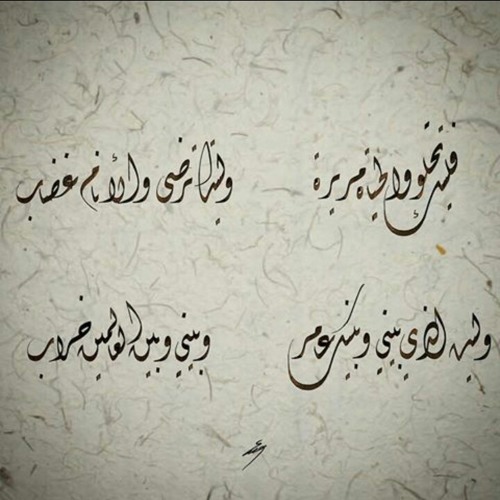 فليتك تحلو والحياة مريرة وليتك ترضى والأنام غضاب
وليت الذي بيني وبينك عامر وبيني وبين العالمين خراب